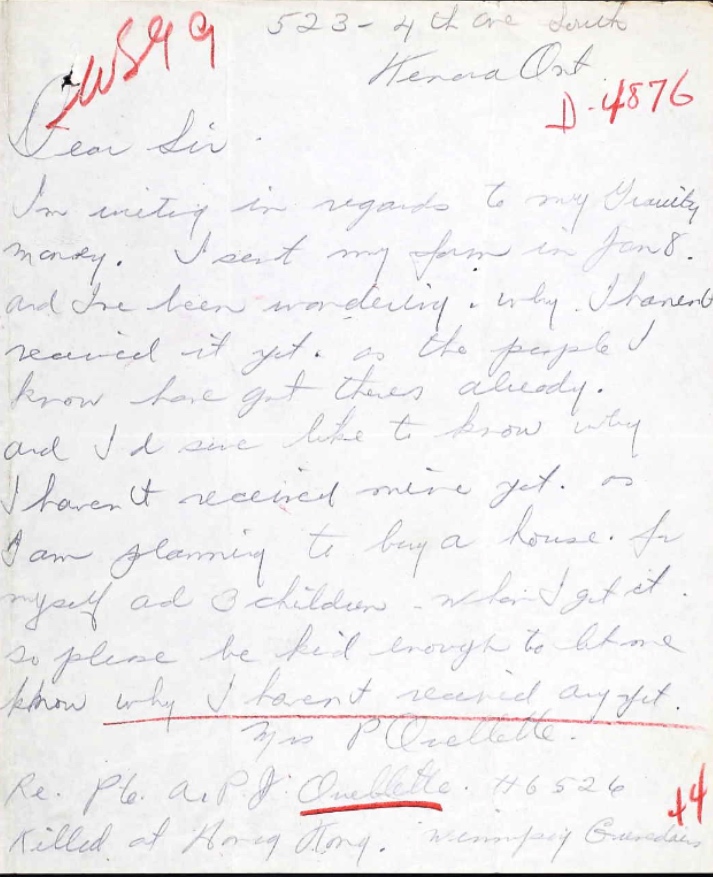 523 - 4th ave South
WSG 9
Kenora Ont.
D-4876
Dear Sir.
I'm writing in regards to my Gratuity
money. I sent my form in Jan 8.
and I've been wondering. why. I havent
received it yet. as the people I
know have got theres already.
and I'd sure like to know why
I haven't received mine yet. as
I am planning to buy a house. for
myself ad 3 children - when I get it.
so please be kid enough to let me
know why I haven't received any yet.
Mrs P Ouellette.
Re. Pte. A.P.J. Ouellette. H6526
44
Killed at Hong Kong. Winnipeg Grenadiers